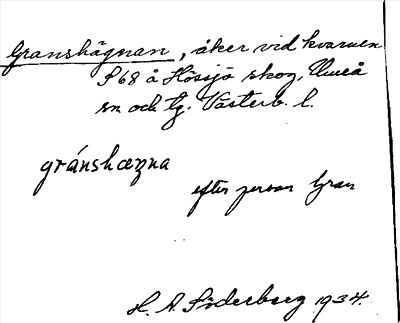 Granshägnan, åker vid kvarnen
S 68 å Hössjö skog, Umeå
sn och tg. Västerb. l.
gránshæŋna
efter person Gran
H. A. Söderberg 1934.